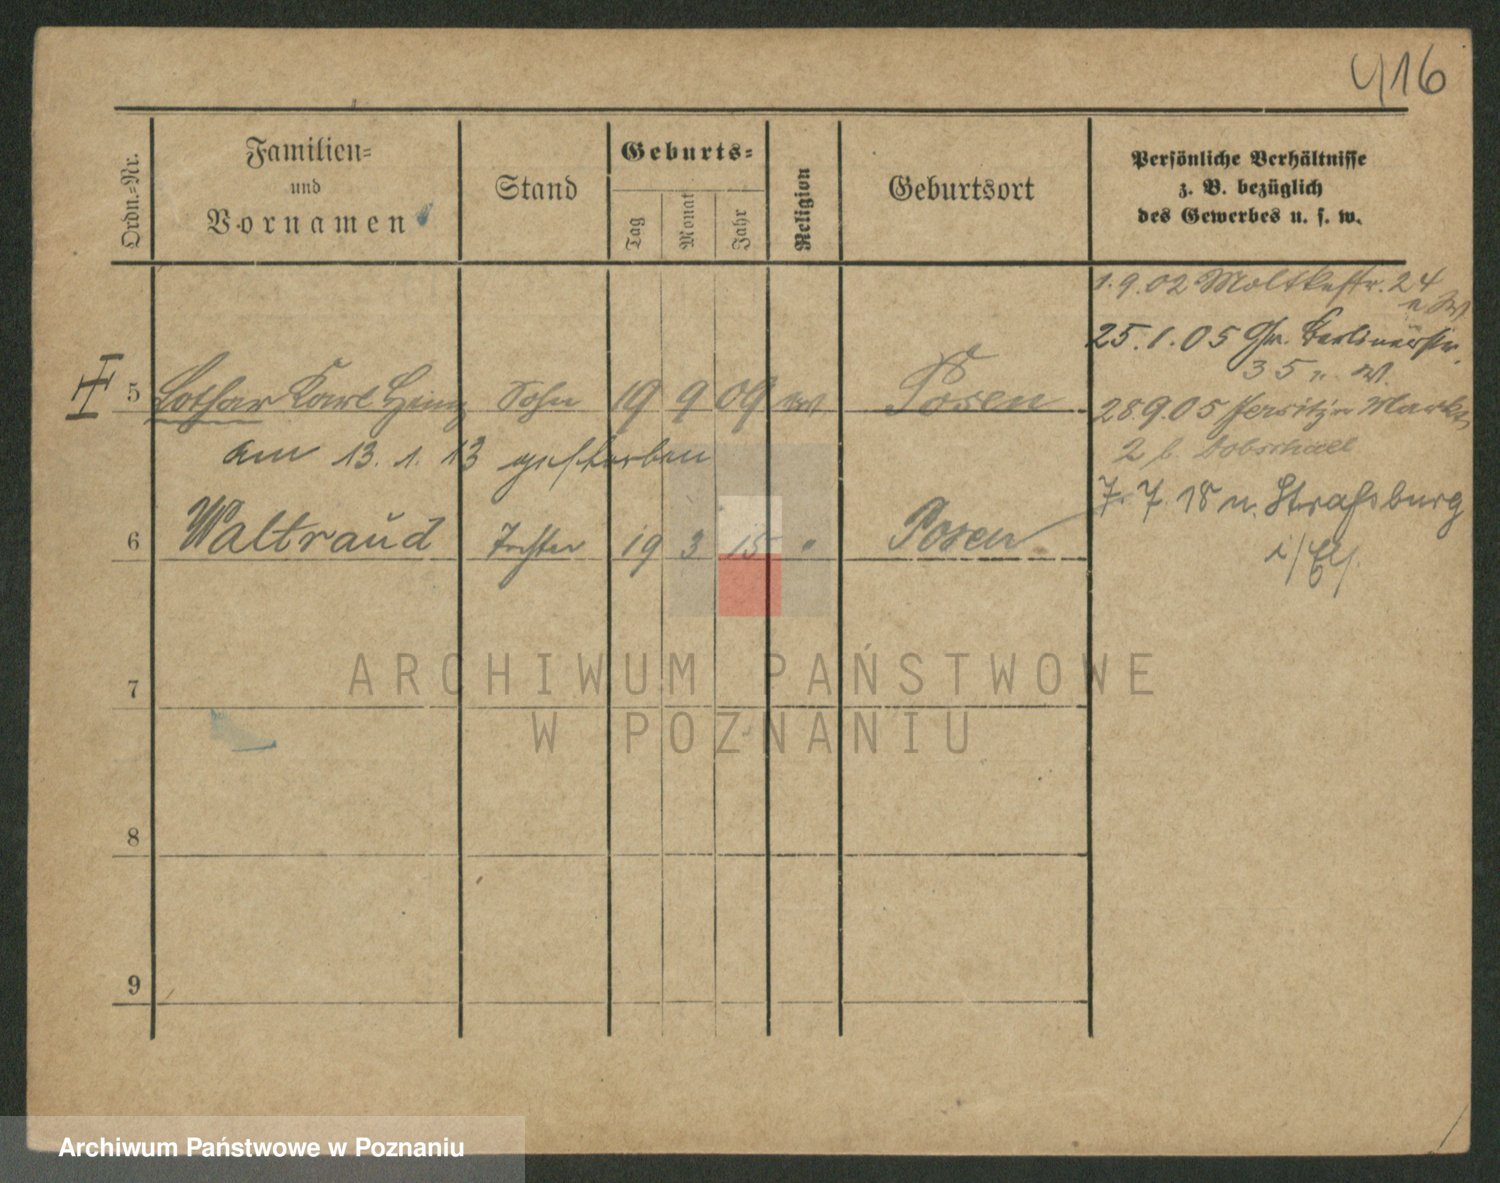 416
Ordn.-Nr.
Familien-
und
Vornamen
Stand
Geburts-
Tag
Monat
Jahr
Religion
Geburtsort
Persönliche Verhältnisse
z. B. bezüglich
des Gewerbes u. s. w.
1.9.02 Moltkestr. 24
25.1.05 Gr. Berlinerstr.
35 n. W.
5 Lothar Karl Heinz Sohn 19 9 09 ev Posen
28.9.05 Jersitzer Markt
am 13. 1. 13 gestorben
2 b.
6 Waltraud Tochter 19 3 15 " Posen
7. 7. 18 n. Straßburg
i/Els.
7
8
9
ARCHIWUM PAŃSTWOWE
W POZNANIU
Archiwum Państwowe w Poznaniu